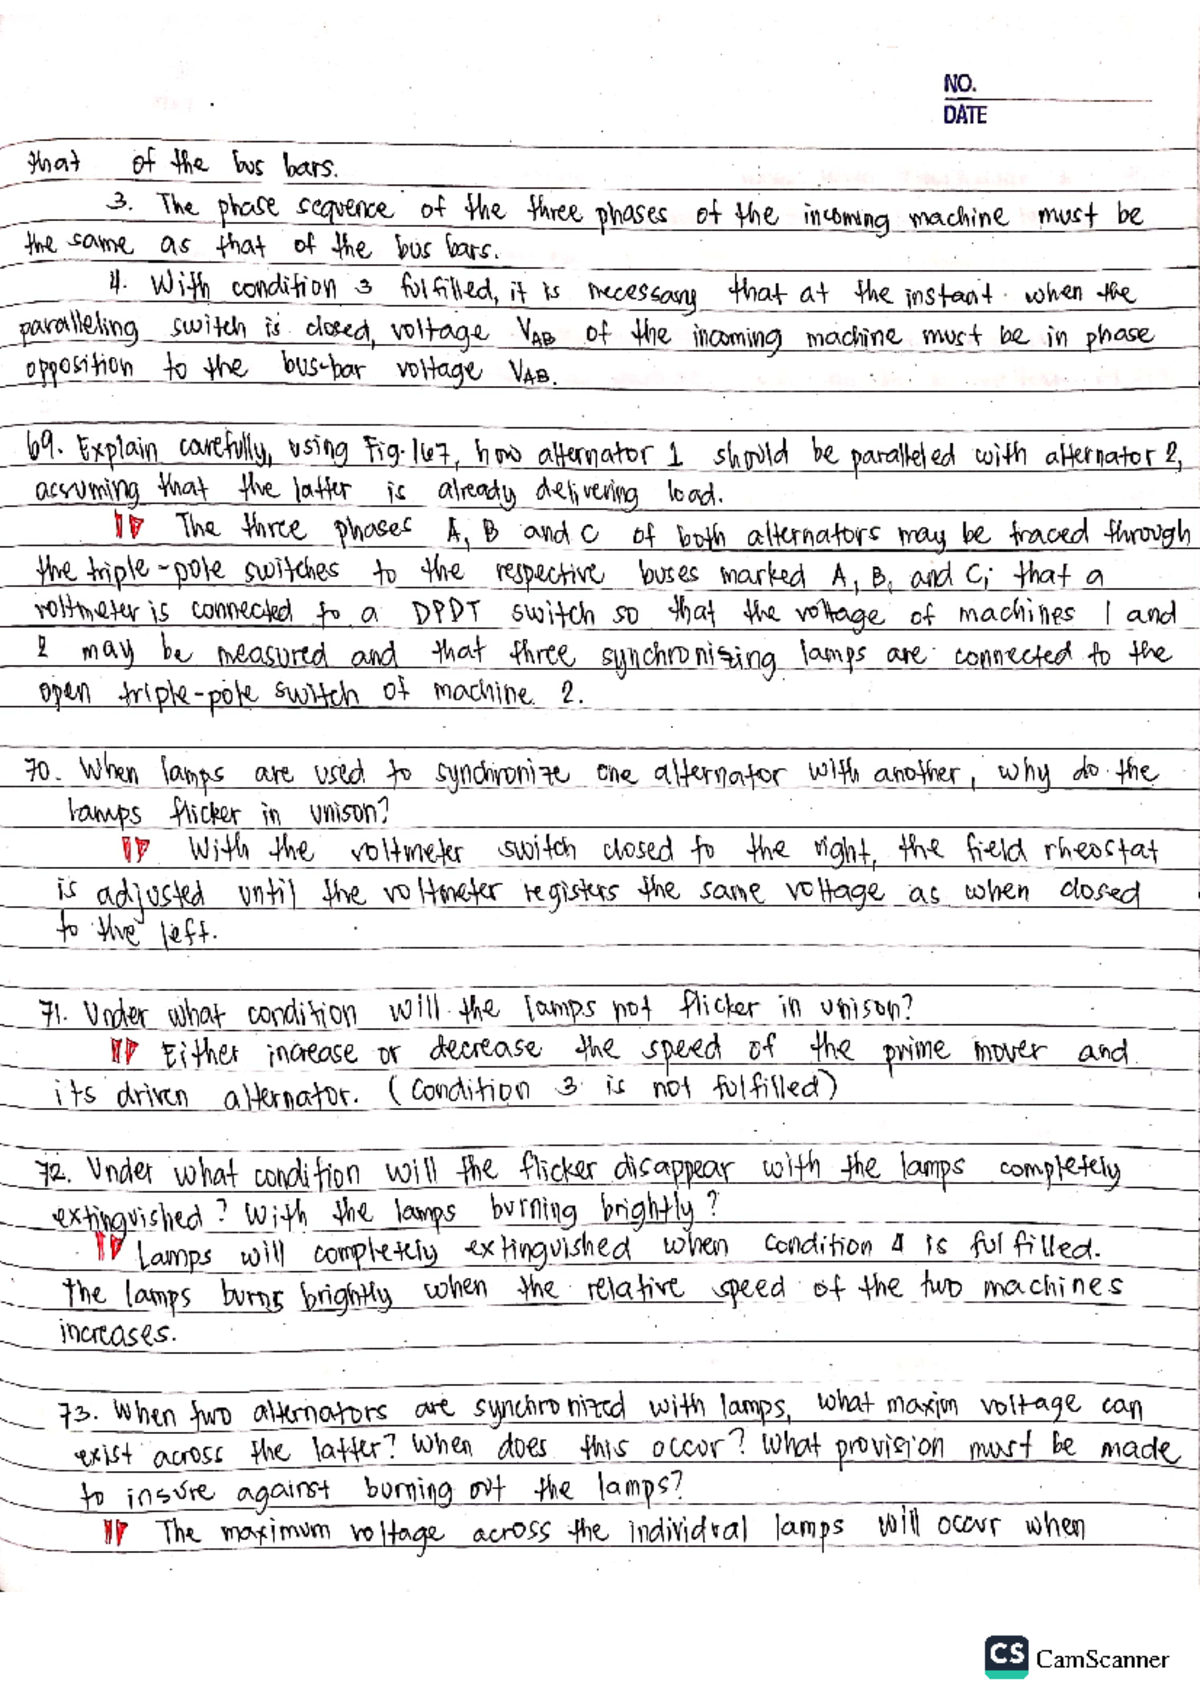 NO.
DATE
that of the bus bars.
3. The phase sequence of the three phases of the incoming machine must be
the same as that of the bus bars.
4. With condition 3 fulfilled, it is necessary that at the instant when the
paralleling switch is closed, voltage VAB of the incoming machine must be in phase
opposition to the bus-bar voltage VAB.
69. Explain carefully, using Fig. 167, how alternator 1 should be paralleled with alternator 2,
assuming that the latter is already delivering load.
The three phases A, B and C of both alternators may be traced through
the triple-pole switches to the respective buses marked A, B, and C; that a
voltmeter is connected to a DPDT switch so that the voltage of machines 1 and
2 may be measured and that three synchronizing lamps are connected to the
open triple-pole switch of machine 2.
70. When lamps are used to synchronize one alternator with another, why do the
lamps flicker in unison?
With the voltmeter switch closed to the right, the field rheostat
is adjusted until the voltmeter registers the same voltage as when closed
to the left.
71. Under what condition will the lamps not flicker in unison?
Either increase or decrease the speed of the prime mover and
its driven alternator. (Condition 3 is not fulfilled)
72. Under what condition will the flicker disappear with the lamps completely
extinguished? With the lamps burning brightly?
Lamps will completely extinguished when condition 4 is fulfilled.
The lamps burns brightly when the relative speed of the two machines
increases.
73. When two alternators are synchronized with lamps, what maxim voltage can
exist across the latter? When does this occur? What provision must be made
to insure against burning out the lamps?
The maximum voltage across the individual lamps will occur when
CS CamScanner